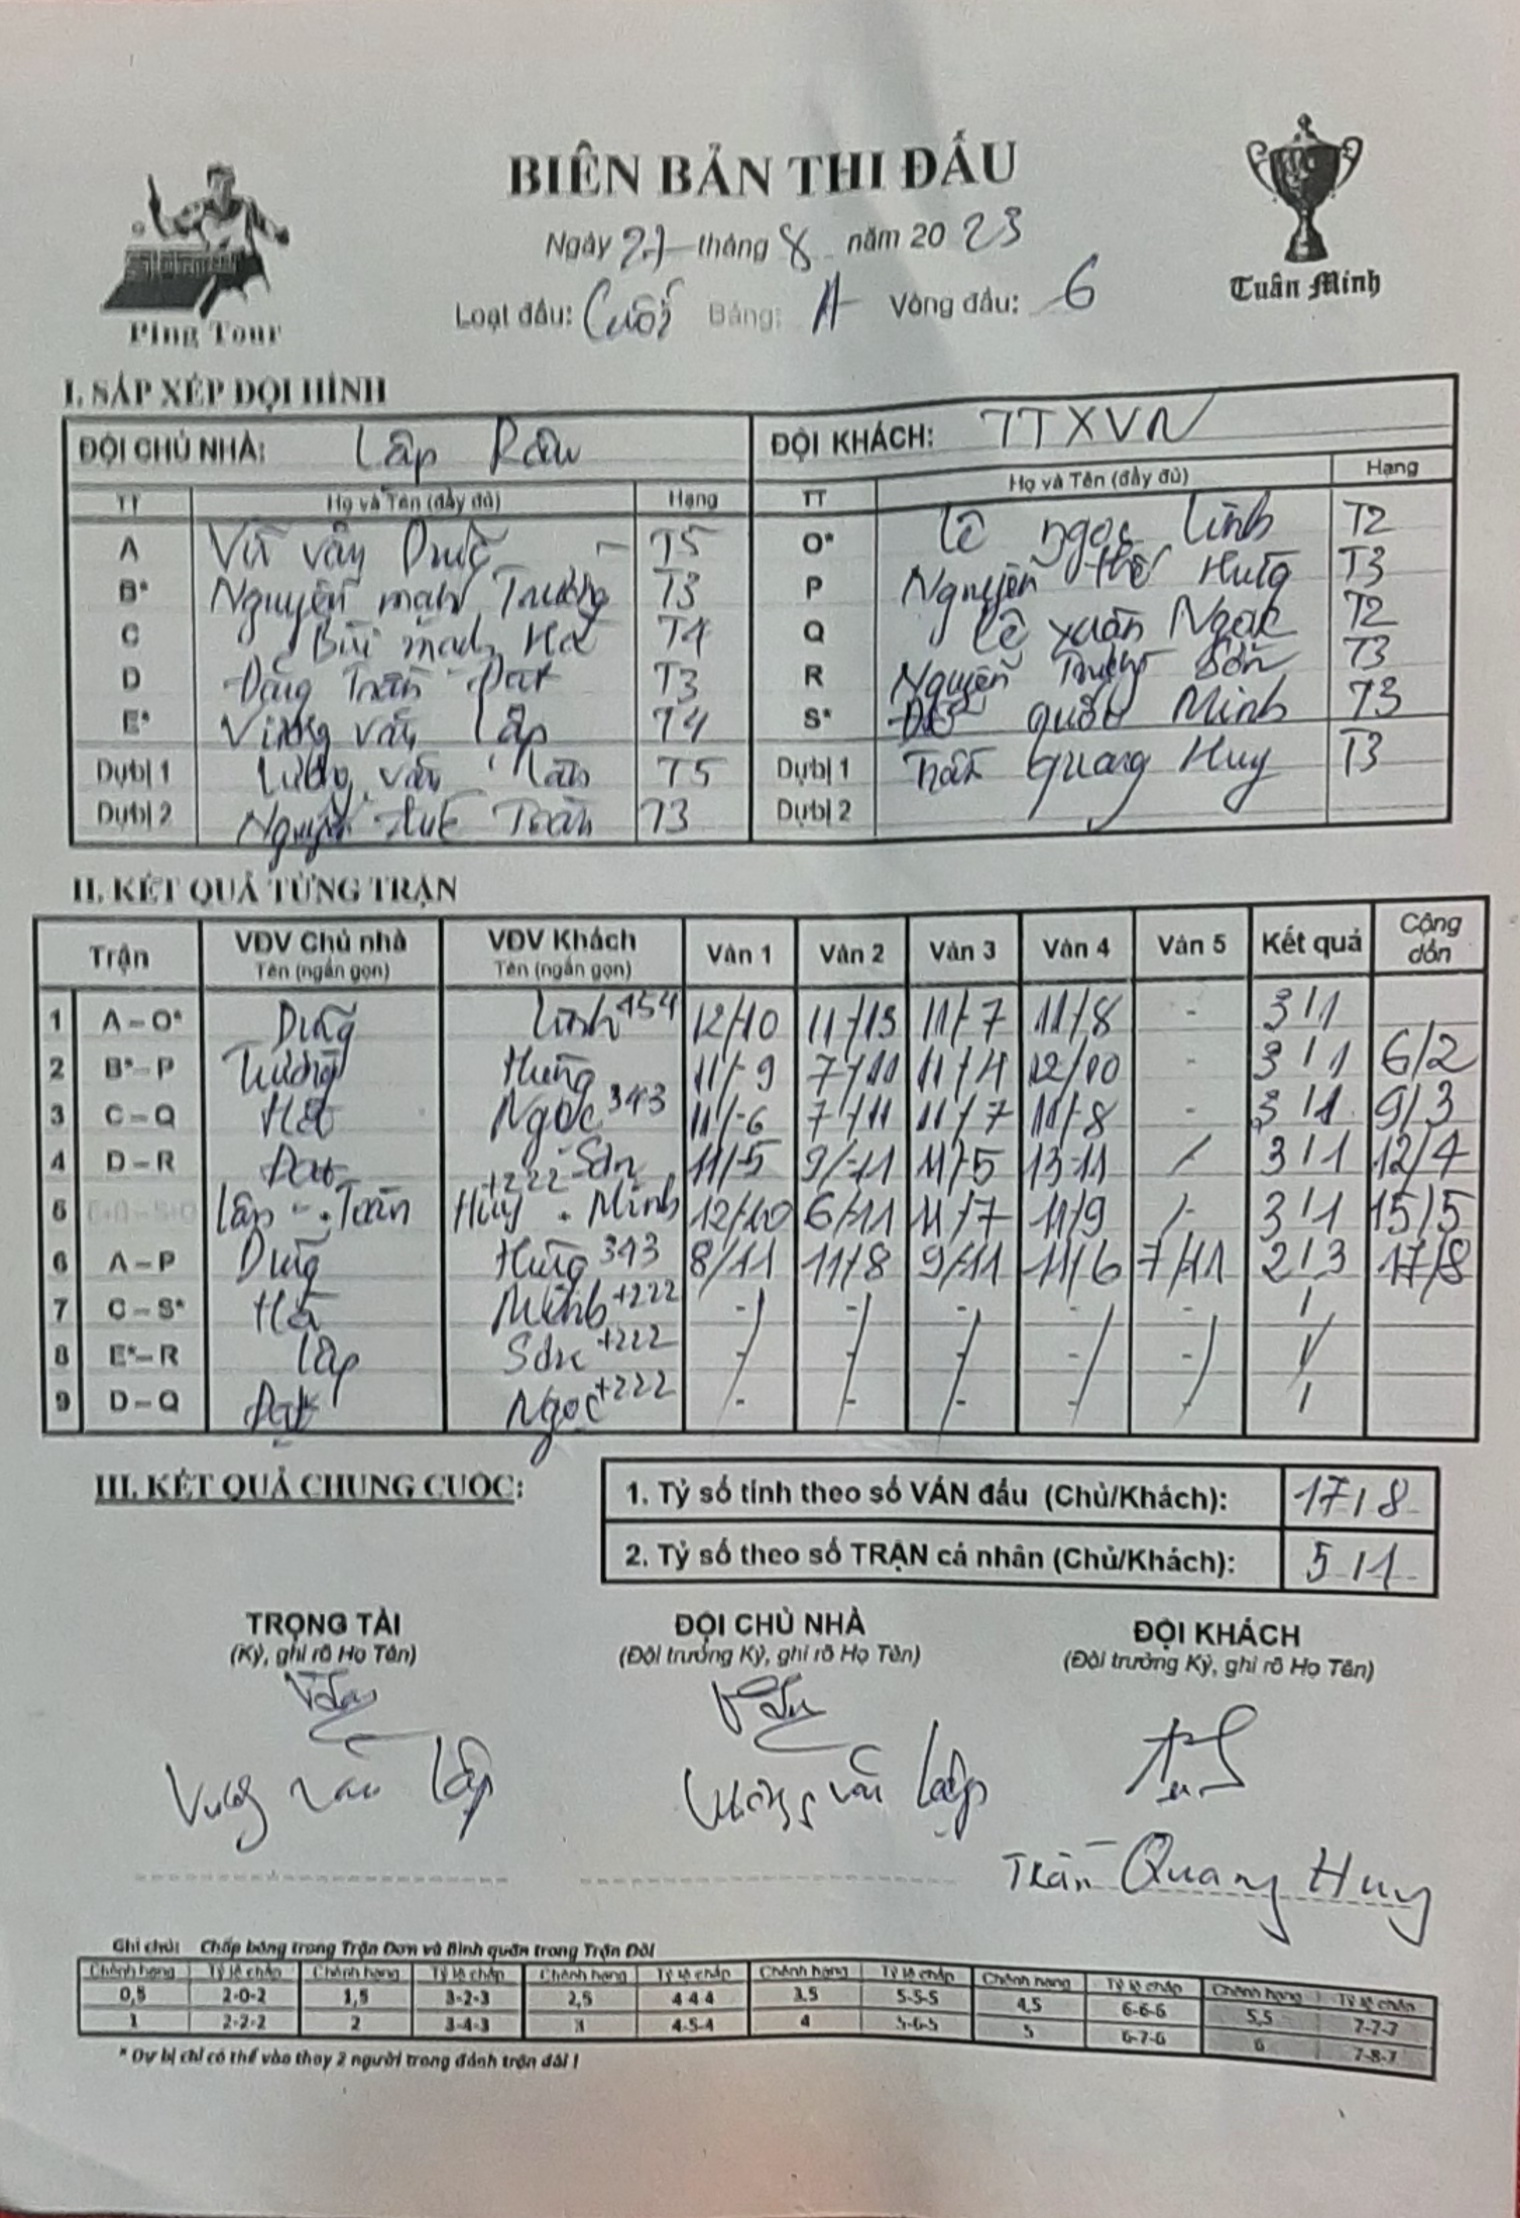 BIÊN BẢN THI ĐẤU
Ngày 27 tháng 8 năm 20 23
Loạt đấu: Cuối Bảng: A Vòng đấu: 6
Ping Tour
Tuấn Minh
I. SẮP XẾP ĐỘI HÌNH
ĐỘI CHỦ NHÀ: Lập Râu ĐỘI KHÁCH: TTXVN
TT Họ và Tên (đầy đủ) Hạng TT Họ và Tên (đầy đủ) Hạng
A Vũ văn T5 O* Lê ngọc Linh T2
B* Nguyễn mạnh Trường T3 P Nguyễn thế Hưng T3
C Bùi mạnh Hà T4 Q Lê xuân Ngọc T2
D Đặng Trần Đạt T3 R Nguyễn Trường Sơn T3
E* Vương văn Lập T4 S* Đỗ quốc Minh T3
Dự bị 1 văn T5 Dự bị 1 Trần Quang Huy T3
Dự bị 2 Nguyễn Toàn T3 Dự bị 2
II. KẾT QUẢ TỪNG TRẬN
Trận VĐV Chủ nhà Tên (ngắn gọn) VĐV Khách Tên (ngắn gọn) Ván 1 Ván 2 Ván 3 Ván 4 Ván 5 Kết quả Cộng dồn
1 A – O* Dũng Linh 454 12/10 11/13 11/7 11/8 - 3/1
2 B* – P Trường Hưng 11/9 7/11 11/4 12/10 - 3/1 6/2
3 C – Q Hà Ngọc 343 11/6 7/11 11/7 11/8 - 3/1 9/3
4 D – R Đạt Sơn 11/5 9/11 11/5 13/11 / 3/1 12/4
5 Lập - Toàn +222 Huy . Minh 12/10 6/11 11/7 11/9 / 3/1 15/5
6 A – P Dũng Hưng 343 8/11 11/8 9/11 11/6 7/11 2/3 17/8
7 C – S* Hà Minh +222 / / / / / /
8 E* – R Lập Sơn +222 / / / / / /
9 D – Q Đạt Ngọc +222 / / / / / /
III. KẾT QUẢ CHUNG CUỘC:
1. Tỷ số tính theo số VÁN đấu (Chủ/Khách): 17/8
2. Tỷ số theo số TRẬN cá nhân (Chủ/Khách): 5/1
TRỌNG TÀI ĐỘI CHỦ NHÀ ĐỘI KHÁCH
(Ký, ghi rõ Họ Tên) (Đội trưởng Ký, ghi rõ Họ Tên) (Đội trưởng Ký, ghi rõ Họ Tên)
Vương văn Lập Vương văn Lập
Trần Quang Huy
Ghi chú: Chấp bóng trong Trận Đơn và Bình quân trong Trận Đôi
Chênh hạng Tỷ lệ chấp Chênh hạng Tỷ lệ chấp Chênh hạng Tỷ lệ chấp Chênh hạng Tỷ lệ chấp Chênh hạng Tỷ lệ chấp Chênh hạng Tỷ lệ chấp
0,5 2-0-2 1,5 3-2-3 2,5 4-4-4 3,5 5-5-5 4,5 6-6-6 5,5 7-7-7
1 2-2-2 2 3-4-3 3 4-5-4 4 5-6-5 5 6-7-6 6 7-8-7
* Dự bị chỉ có thể vào thay 2 người trong đánh trận đôi !